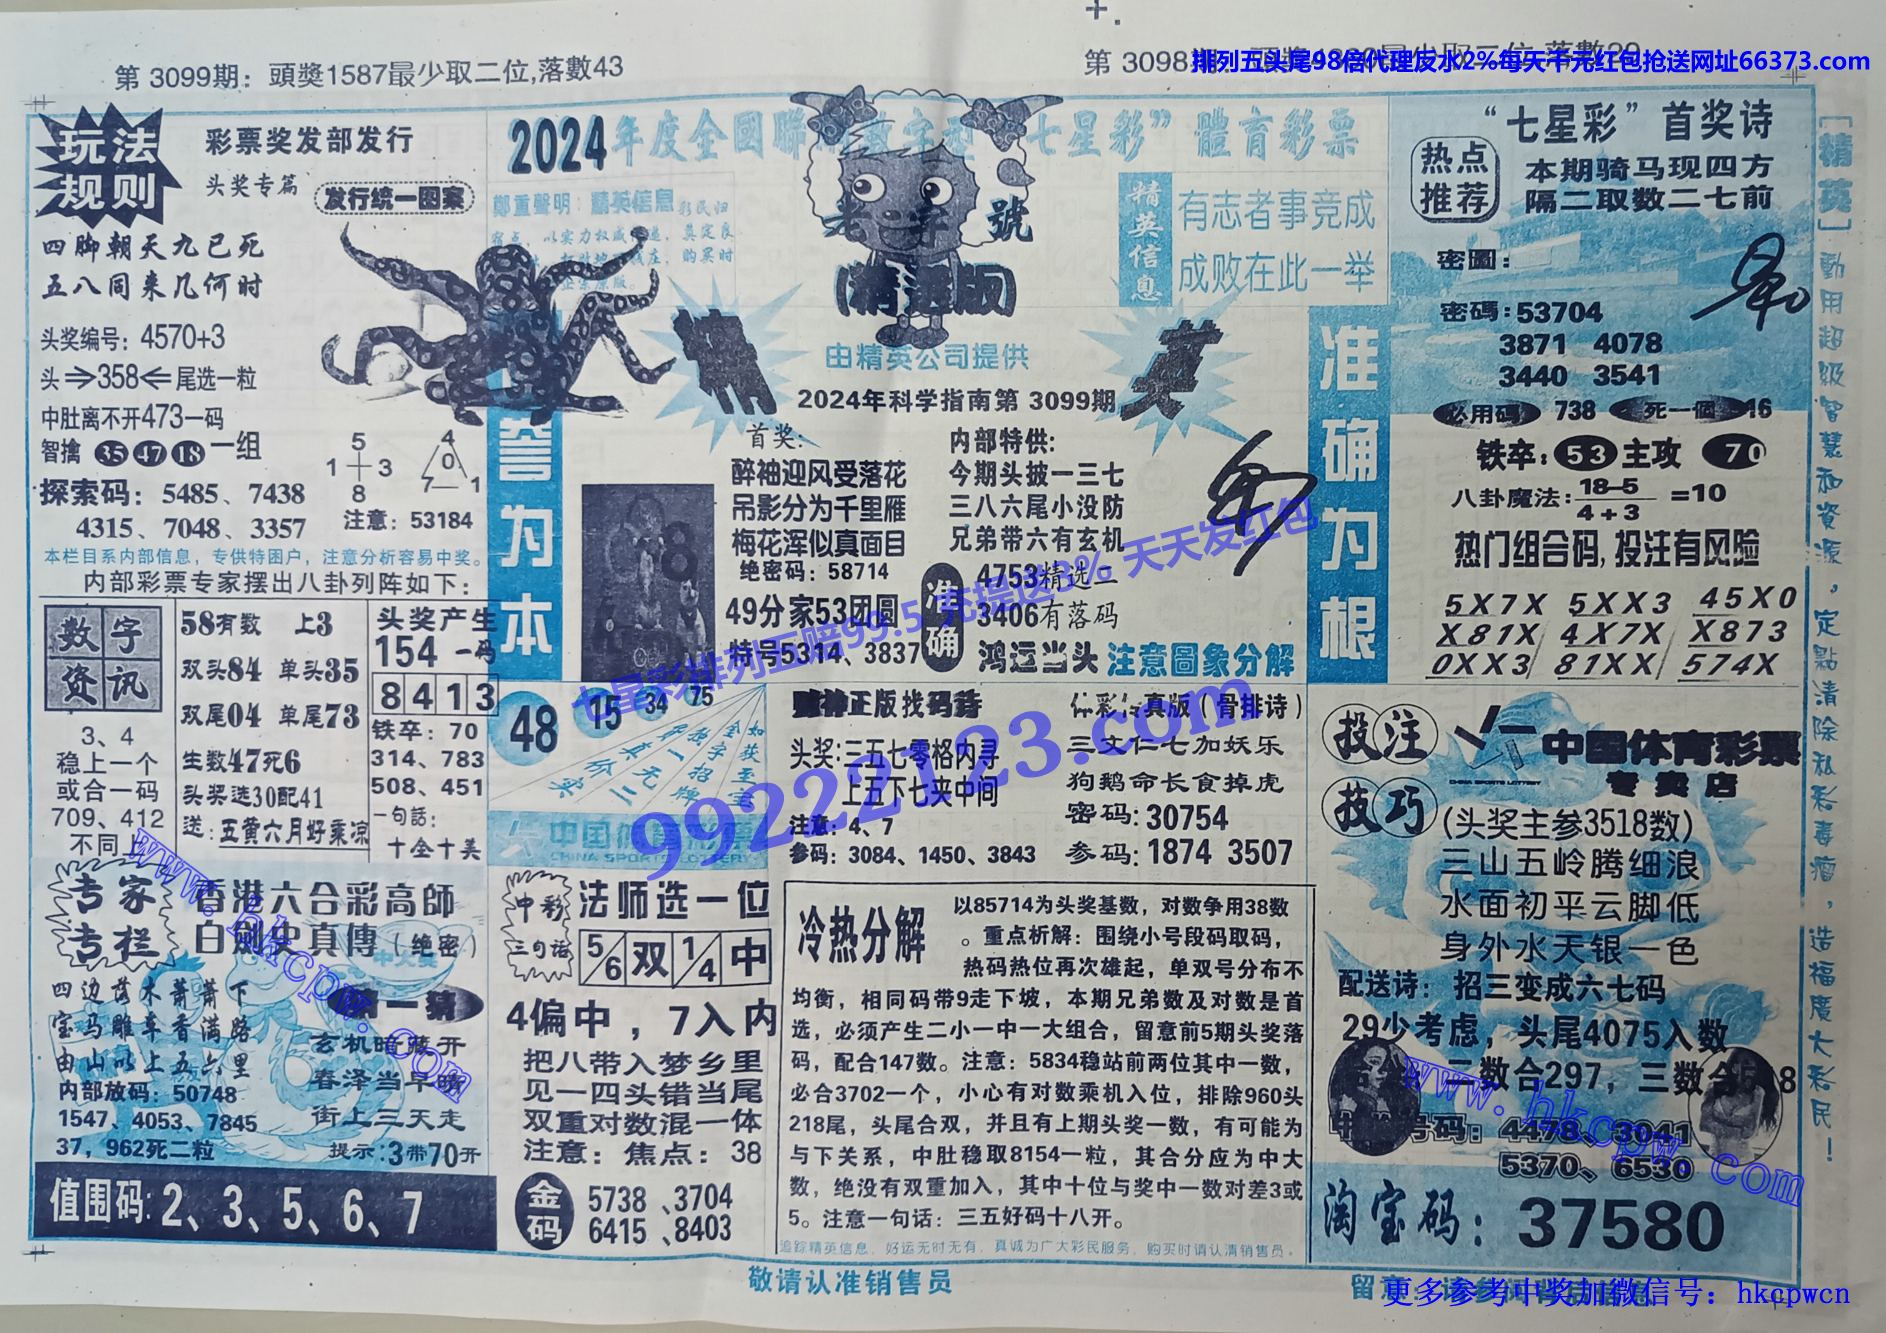 第 3099期：頭獎1587最少取二位,落數43
排列五头尾98倍代理反水2%每天千元红包抢送网址66373.com
第 3098期
玩法
规则
彩票奖发部发行
头奖专篇
发行统一图案
四脚朝天九已死
五八同来几何时
头奖编号：4570+3
头⇒358⇐尾选一粒
中肚离不开473一码
智擒 35 47 18 一组
5
1 3
8
4
0
7 1
探索码：5485、7438
4315、7048、3357
注意：53184
本栏目系内部信息，专供特困户，注意分析容易中奖。
内部彩票专家摆出八卦列阵如下：
数字
资讯
3、4
稳上一个
或合一码
709、412
不同上
58有数 上3
双头84 单头35
双尾04 单尾73
生数47死6
头奖选30配41
送：五黄六月好乘凉
头奖产生
154 一码
8 4 1 3
铁卒：70
314、783
508、451
一句話：
十全十美
专家
专栏
香港六合彩高師
白劍史真傳（绝密）
四边落木萧萧下
宝马雕车香满路
由山以上五六里
内部放码：50748
1547、4053、7845
37，962死二粒
猜一猜
玄机暗藏开
春泽当早晴
街上三天走
提示:3带70开
值围码：2、3、5、6、7
2024年度全國聯 數字型 “七星彩” 體育彩票
鄭重聲明：精英信息
老字號
(精选版)
精英信息
有志者事竞成
成败在此一举
精 英
由精英公司提供
2024年科学指南第 3099期
誉为本
准确为根
首奖:
醉袖迎风受落花
吊影分为千里雁
梅花浑似真面目
绝密码：58714
49分家53团圆
特号5314、3837
内部特供：
今期头披一三七
三八六尾小没防
兄弟带六有玄机
准确
4753精选二
3406有落码
鸿运当头 注意圖象分解
48 15 34 75
如获至宝
金字招牌
独一
真无二
价
实
中国体育彩票
CHINA SPORTS LOTTERY
赌神正版找码诗
头奖:三五七零格内寻
上五下七夹中间
注意：4、7
参码：3084、1450、3843
体彩传真版（骨排诗）
三文仁七加妖乐
狗鹅命长食掉虎
密码：30754
参码：1874 3507
中彩
三句话
法师选一位
5/6 双 1/4 中
4偏中，7入内
把八带入梦乡里
见一四头错当尾
双重对数混一体
注意：焦点：38
金码
5738、3704
6415、8403
冷热分解
以85714为头奖基数，对数争用38数
。重点析解：围绕小号段码取码，
热码热位再次雄起，单双号分布不
均衡，相同码带9走下坡，本期兄弟数及对数是首
选，必须产生二小一中一大组合，留意前5期头奖落
码，配合147数。注意：5834稳站前两位其中一数，
必合3702一个，小心有对数乘机入位，排除960头
218尾，头尾合双，并且有上期头奖一数，有可能为
与下关系，中肚稳取8154一粒，其合分应为中大
数，绝没有双重加入，其中十位与奖中一数对差3或
5。注意一句话：三五好码十八开。
追踪精英信息，好运无时无有，真诚为广大彩民服务，购买时请认清销售员。
敬请认准销售员
“七星彩”首奖诗
热点
推荐
本期骑马现四方
隔二取数二七前
密圖：
密碼：53704
3871 4078
3440 3541
必用码 738 死一個 16
铁卒：53 主攻 70
八卦魔法: 18-5 / 4+3 =10
热门组合码,投注有风险
5X7X 5XX3 45X0
X81X 4X7X X873
0XX3 81XX 574X
投注
技巧
中国体育彩票
CHINA SPORTS LOTTERY
专卖店
(头奖主参3518数)
三山五岭腾细浪
水面初平云脚低
身外水天银一色
配送诗：招三变成六七码
29少考虑，头尾4075入数
二数合297，三数合 8
号码：4478、3941
5370、6530
淘宝码：37580
［精英］動用超级智慧和資源，定點清除私彩毒瘤，造福廣大彩民！
七星彩排列五赔99.5 充提送3% 天天发红包
99222123.com
www.hkcpw.com
www.hkcpw.com
更多参考中奖加微信号：hkcpwcn